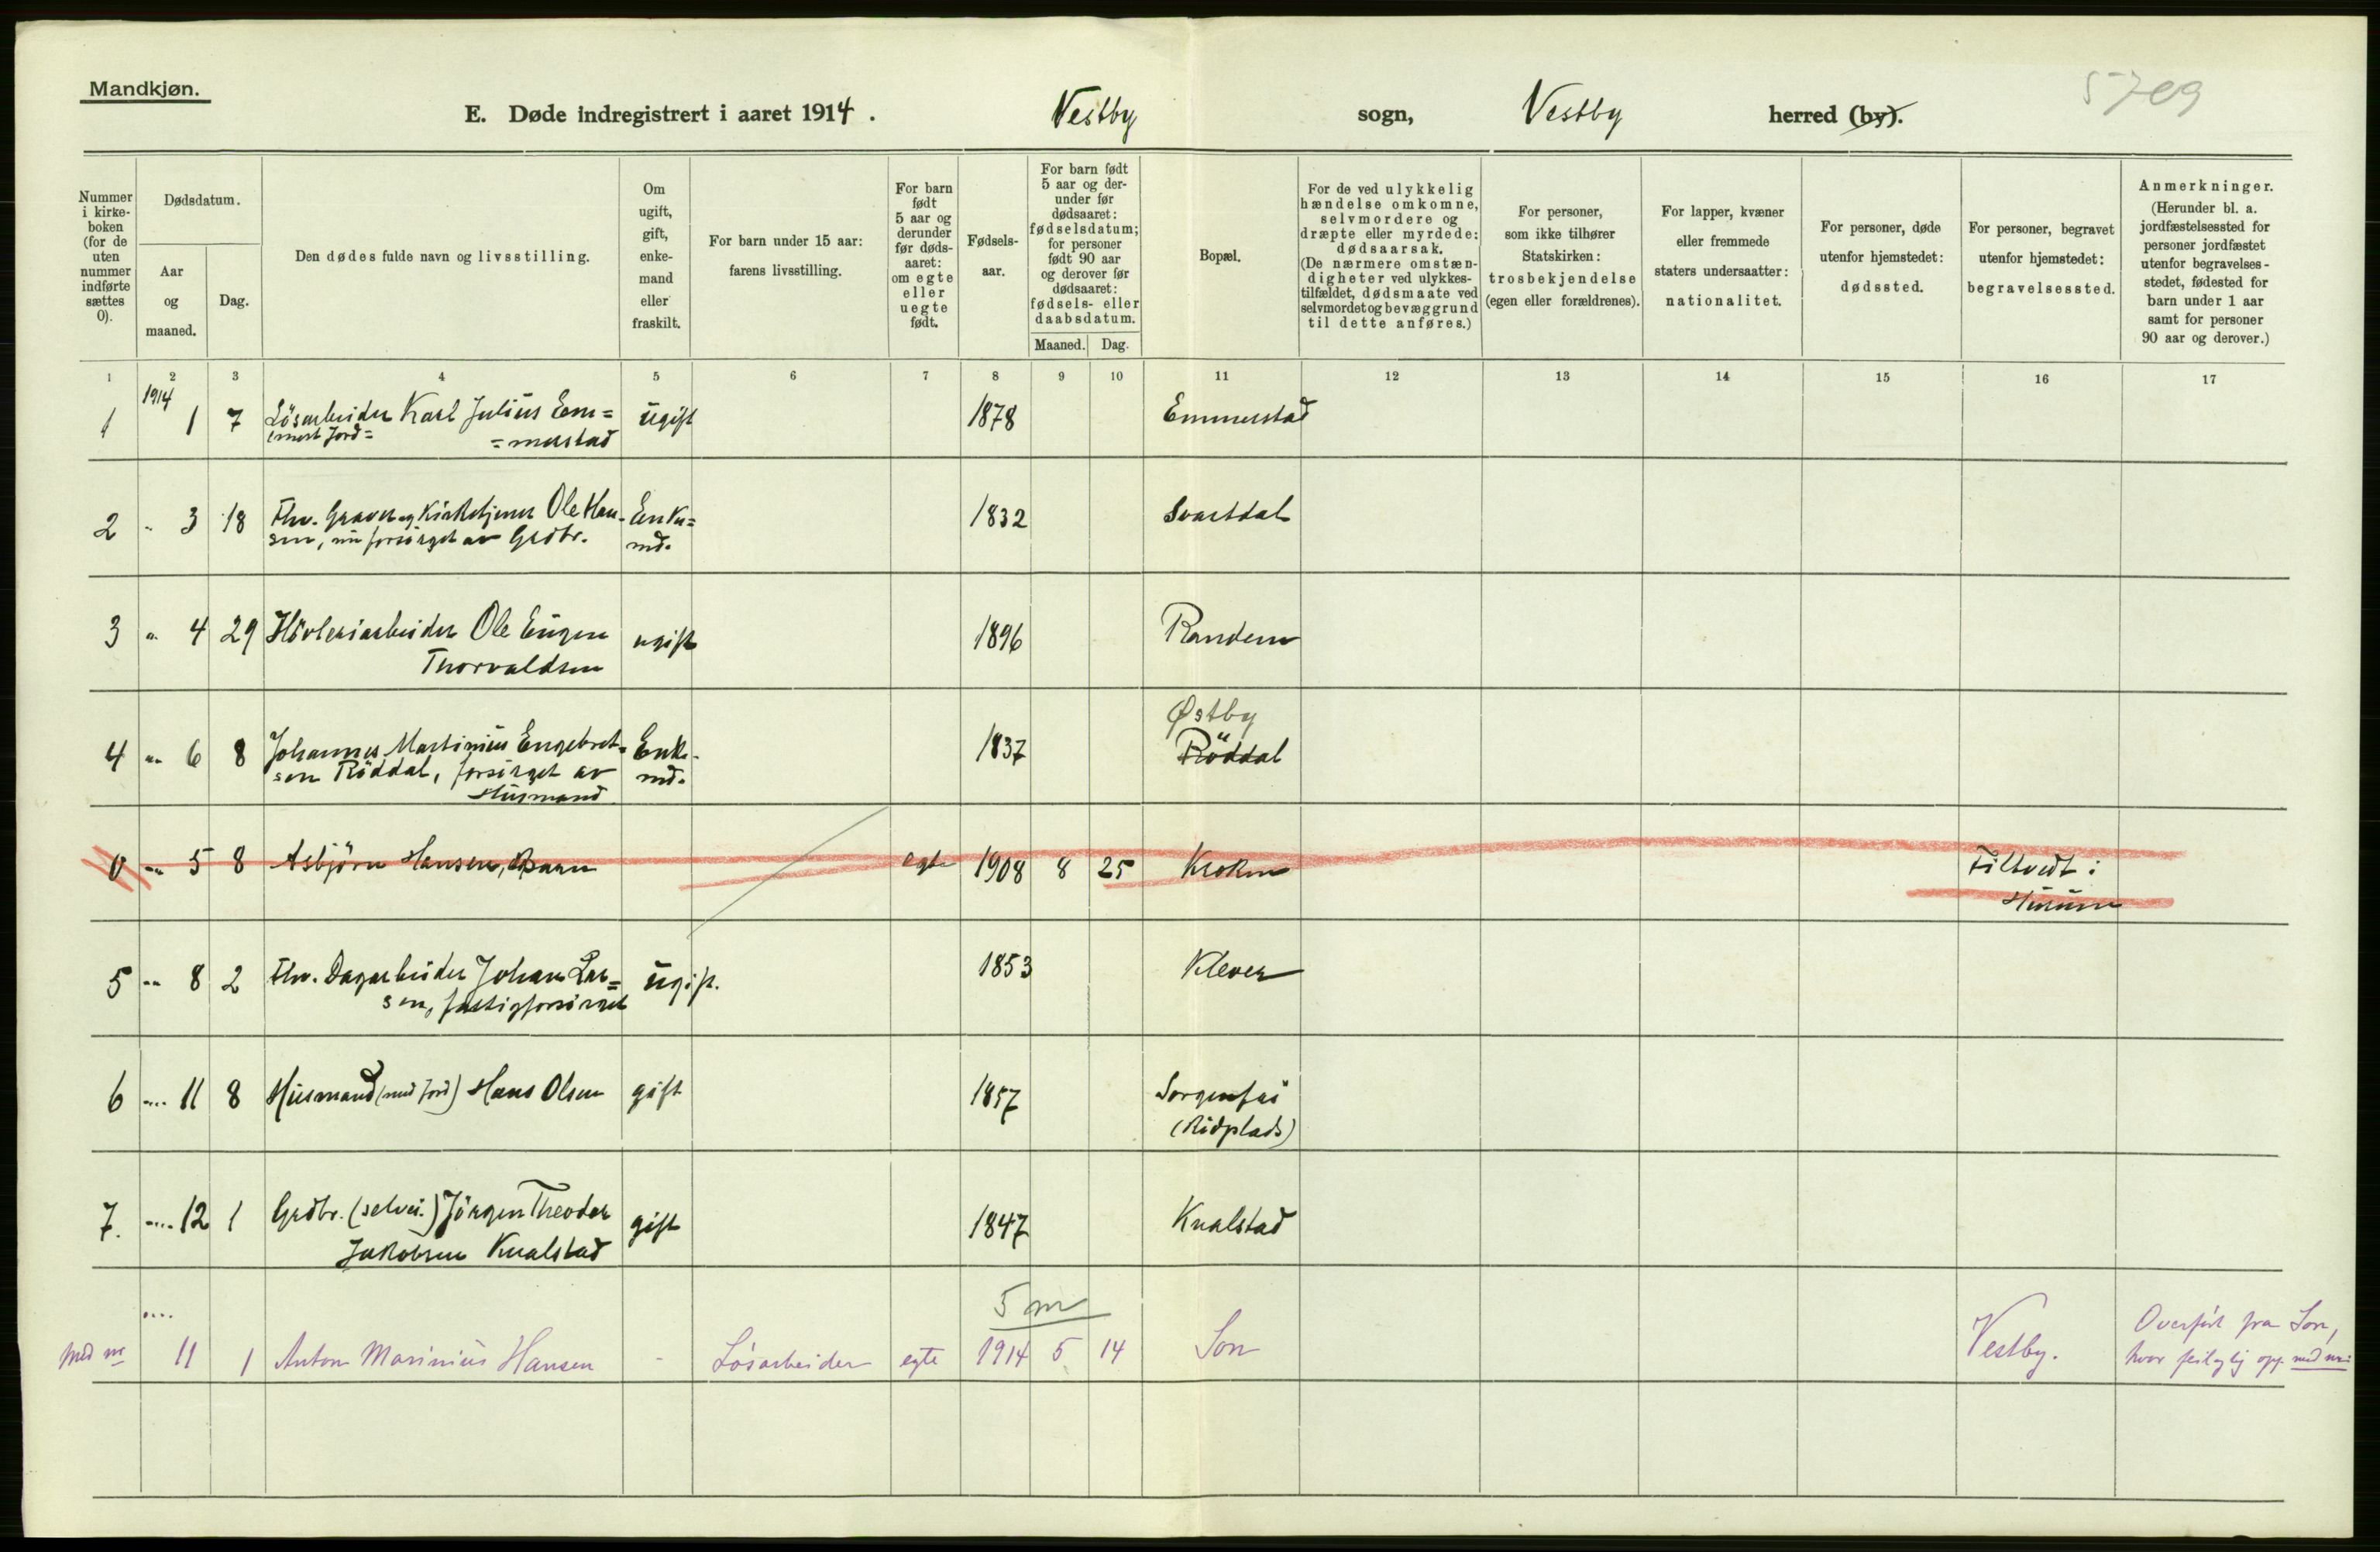 Mandkjøn.
5709
E. Døde indregistrert i aaret 1914. Vestby sogn, Vestby herred (by).
Nummer i kirke-boken (for de uten nummer indførte sættes 0).
Dødsdatum.
Aar og maaned.
Dag.
Den dødes fulde navn og livsstilling.
Om ugift, gift, enke-mand eller fraskilt.
For barn under 15 aar: farens livsstilling.
For barn født 5 aar og derunder før døds-aaret: om egte eller uegte født.
Fødsels-aar.
For barn født 5 aar og der-under før dødsaaret: fødselsdatum; for personer født 90 aar og derover før dødsaaret: fødsels- eller daabsdatum.
Maaned. Dag.
Bopæl.
For de ved ulykkelig hændelse omkomne, selvmordere og dræpte eller myrdede: dødsaarsak. (De nærmere omstæn-digheter ved ulykkes-tilfældet, dødsmaate ved selvmordet og bevæggrund til dette anføres.)
For personer, som ikke tilhører Statskirken: trosbekjendelse (egen eller forældrenes).
For lapper, kvæner eller fremmede staters undersaatter: nationalitet.
For personer, døde utenfor hjemstedet: dødssted.
For personer, begravet utenfor hjemstedet: begravelsessted.
Anmerkninger. (Herunder bl. a. jordfæstelsessted for personer jordfæstet utenfor begravelses-stedet, fødested for barn under 1 aar samt for personer 90 aar og derover.)
1 2 3 4 5 6 7 8 9 10 11 12 13 14 15 16 17
1914
1 1 7 Lösarbeider Karl Julius Em= ugift 1878 Emmerstad
(mest Jord= =merstad
2 " 3 18 Fhv. Graver og Kirketjener Ole Han- Enke= 1832 Svartdal
sen, nu forsörget av Grdbr. md.
3 " 4 29 Hövleriarbeider Ole Eugen ugift 1896 Randem
Thorvaldsen
Østby
4 " 6 8 Johannes Martinius Engebret- Enke- 1837 Röddal
sen Röddal, forsörget av md.
Husmand
0 " 5 8 Asbjörn Hansen, Barn egte 1908 8 25 Kroken Filtvedt i
Hurum
5 " 8 2 Fhv. Dagarbeider Johan Lar= ugift. 1853 Klever
sen, fattigforsörget
6 " 11 8 Husmand (med Jord) Hans Olsen gift 1857 Sorgenfri
(Ridplads)
7. " 12 1 Grdbr. (selvei.) Jörgen Theodor gift 1847 Knalstad
Jakobsen Knalstad
5 m
Med nr 11 1 Anton Marinius Hansen - Løsarbeider egte 1914 5 14 Son Vestby. Overført fra Son,
hvor feilagtig opg. med nr: